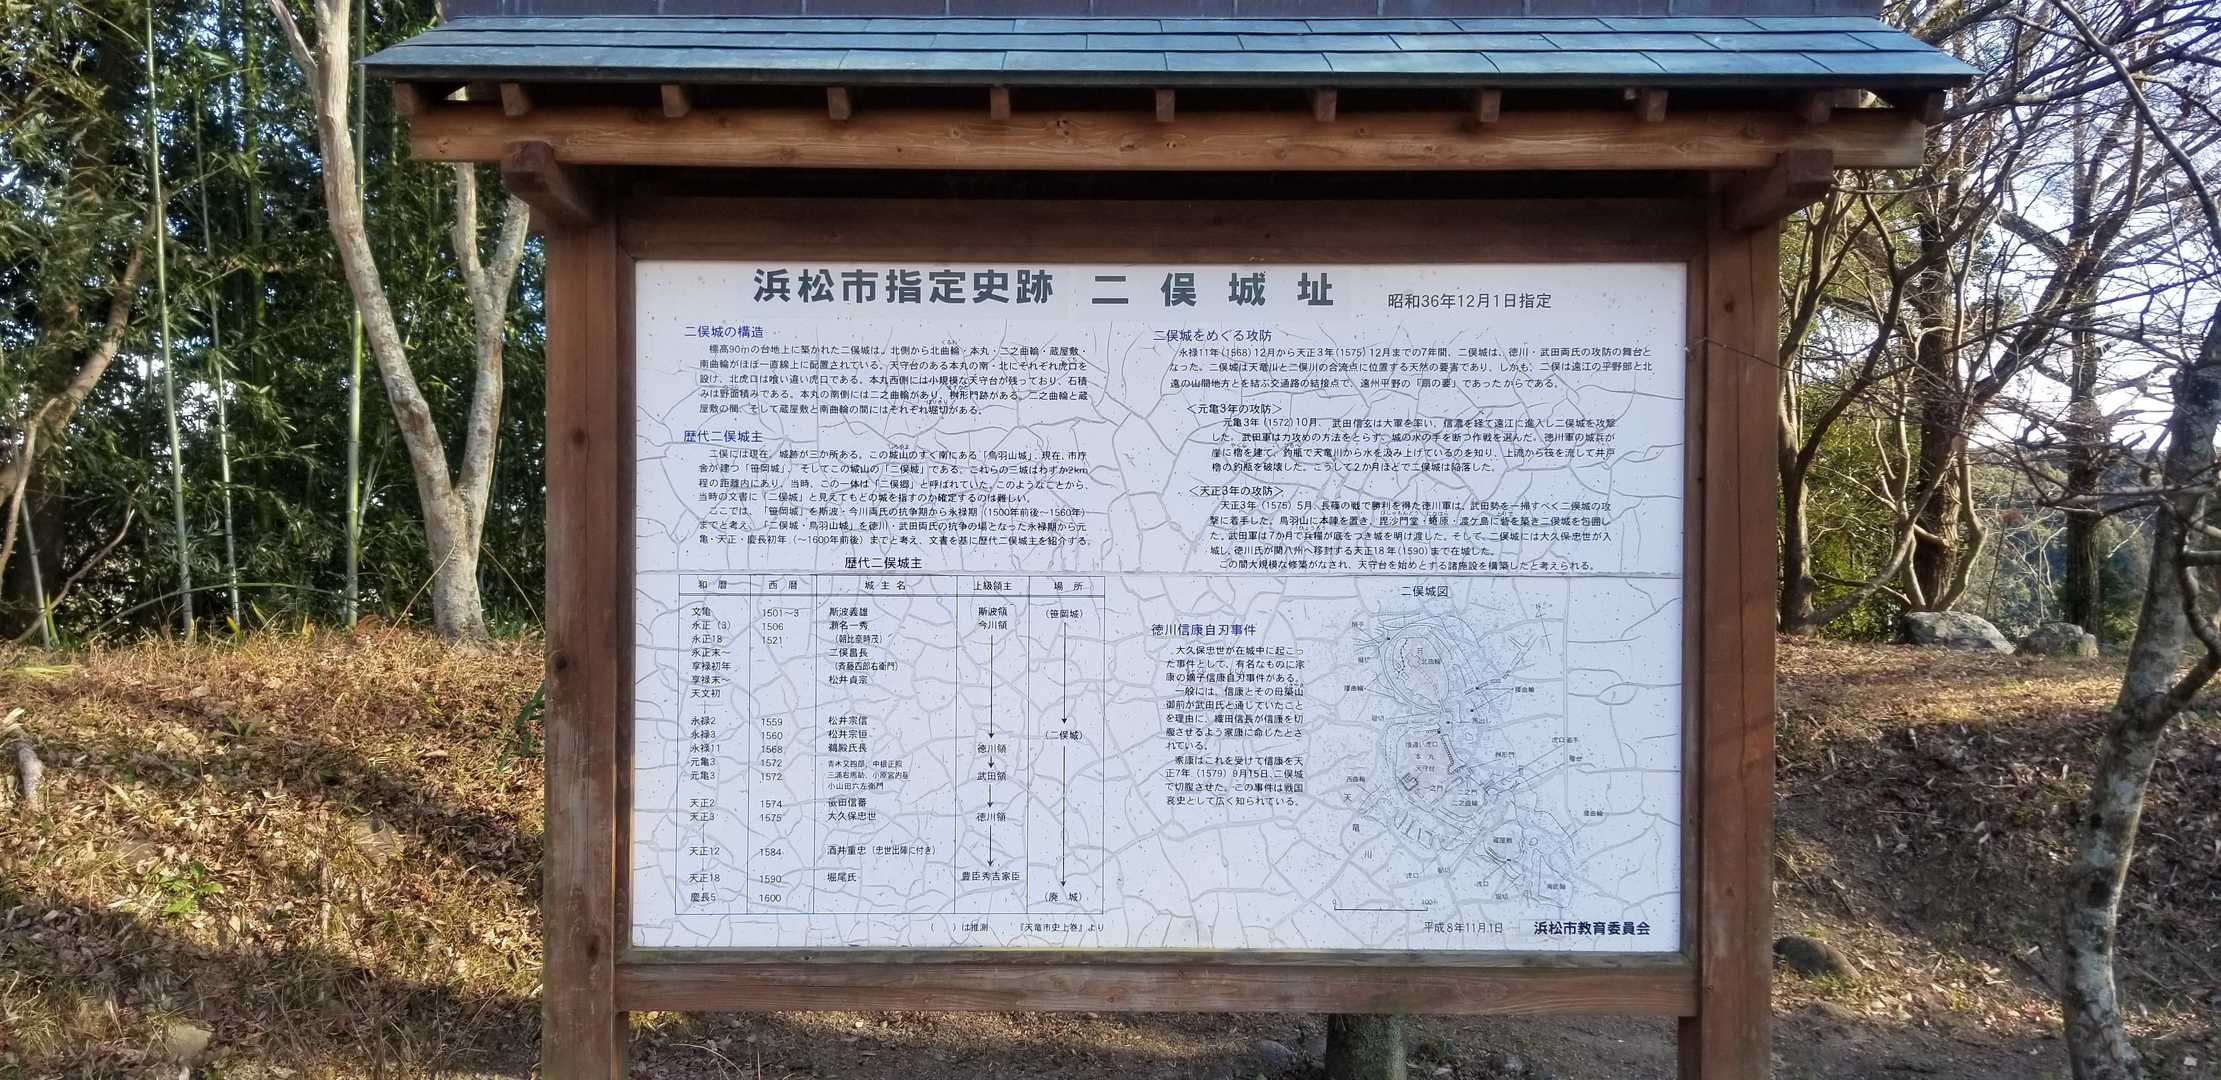 浜松市指定史跡 二俣城址 昭和36年12月1日指定
二俣城の構造
標高90mの台地上に築かれた二俣城は、北側から北曲輪・本丸・二之曲輪・蔵屋敷・
南曲輪がほぼ一直線上に配置されている。天守台のある本丸の南・北にそれぞれ虎口を
設け、北虎口は喰い違い虎口である。本丸西側には小規模な天守台が残っており、石積
みは野面積みである。本丸の南側には二之曲輪があり、桝形門跡がある。二之曲輪と蔵
屋敷の間、そして蔵屋敷と南曲輪の間にはそれぞれ堀切がある。
歴代二俣城主
二俣には現在、城跡が三か所ある。この城山のすぐ南にある「鳥羽山城」、現在、市庁
舎が建つ「笹岡城」、そしてこの城山の「二俣城」である。これらの三城はわずか2km
程の距離内にあり、当時、この一体は「二俣郷」と呼ばれていた。このようなことから、
当時の文書に「二俣城」と見えてもどの城を指すのか確定するのは難しい。
ここでは、「笹岡城」を斯波・今川両氏の抗争期から永禄期（1500年前後〜1560年）
までと考え、「二俣城・鳥羽山城」を徳川・武田両氏の抗争の場となった永禄期から元
亀・天正・慶長初年（〜1600年前後）までと考え、文書を基に歴代二俣城主を紹介する。
歴代二俣城主
和暦 西暦 城主名 上級領主 場所
文亀 1501〜3 斯波義雄 斯波領 （笹岡城）
永正（3） 1506 瀬名一秀 今川領
永正18 1521 （朝比奈時茂）
永正末〜 二俣昌長
享禄初年 （斉藤四郎右衛門）
享禄末〜 松井貞宗
天文初
永禄2 1559 松井宗信
永禄3 1560 松井宗恒 （二俣城）
永禄11 1568 鵜殿氏長 徳川領
元亀3 1572 青木又四郎、中根正照
元亀3 1572 三浦右馬助、小原宮内丞 武田領
小山田六左衛門
天正2 1574 依田信蕃
天正3 1575 大久保忠世 徳川領
天正12 1584 酒井重忠（忠世出陣に付き）
天正18 1590 堀尾氏 豊臣秀吉家臣
慶長5 1600 （廃城）
（ ）は推測 『天竜市史上巻』より
二俣城をめぐる攻防
永禄11年（1568）12月から天正3年（1575）12月までの7年間、二俣城は、徳川・武田両氏の攻防の舞台と
なった。二俣城は天竜川と二俣川の合流点に位置する天然の要害であり、しかも、二俣は遠江の平野部と北
遠の山間地方とを結ぶ交通路の結接点で、遠州平野の「扇の要」であったからである。
＜元亀3年の攻防＞
元亀3年（1572）10月、武田信玄は大軍を率い、信濃を経て遠江に進入し二俣城を攻撃
した。武田軍は力攻めの方法をとらず、城の水の手を断つ作戦を選んだ。徳川軍の城兵が
崖に櫓を建て、釣瓶で天竜川から水を汲み上げているのを知り、上流から筏を流して井戸
櫓の釣瓶を破壊した。こうして2か月ほどで二俣城は陥落した。
＜天正3年の攻防＞
天正3年（1575）5月、長篠の戦で勝利を得た徳川軍は、武田勢を一掃すべく二俣城の攻
撃に着手した。鳥羽山に本陣を置き、毘沙門堂・蜷原・渡ケ島に砦を築き二俣城を包囲し
た。武田軍は7か月で兵糧が底をつき城を明け渡した。そして、二俣城には大久保忠世が入
城し、徳川氏が関八州へ移封する天正18年（1590）まで在城した。
この間大規模な修築がなされ、天守台を始めとする諸施設を構築したと考えられる。
徳川信康自刃事件
大久保忠世が在城中に起こっ
た事件として、有名なものに家
康の嫡子信康自刃事件がある。
一般には、信康とその母築山
御前が武田氏と通じていたこと
を理由に、織田信長が信康を切
腹させるよう家康に命じたとさ
れている。
家康はこれを受けて信康を天
正7年（1579）9月15日、二俣城
で切腹させた。この事件は戦国
哀史として広く知られている。
二俣城図
北曲輪
堀切
腰曲輪
馬出し
喰違い虎口
本丸
天守台
桝形門
西曲輪
一之門
二之門
二之曲輪
腰曲輪
蔵屋敷
天竜川
虎口
堀切
虎口
堀切
南曲輪
0 100m
平成8年11月1日 浜松市教育委員会